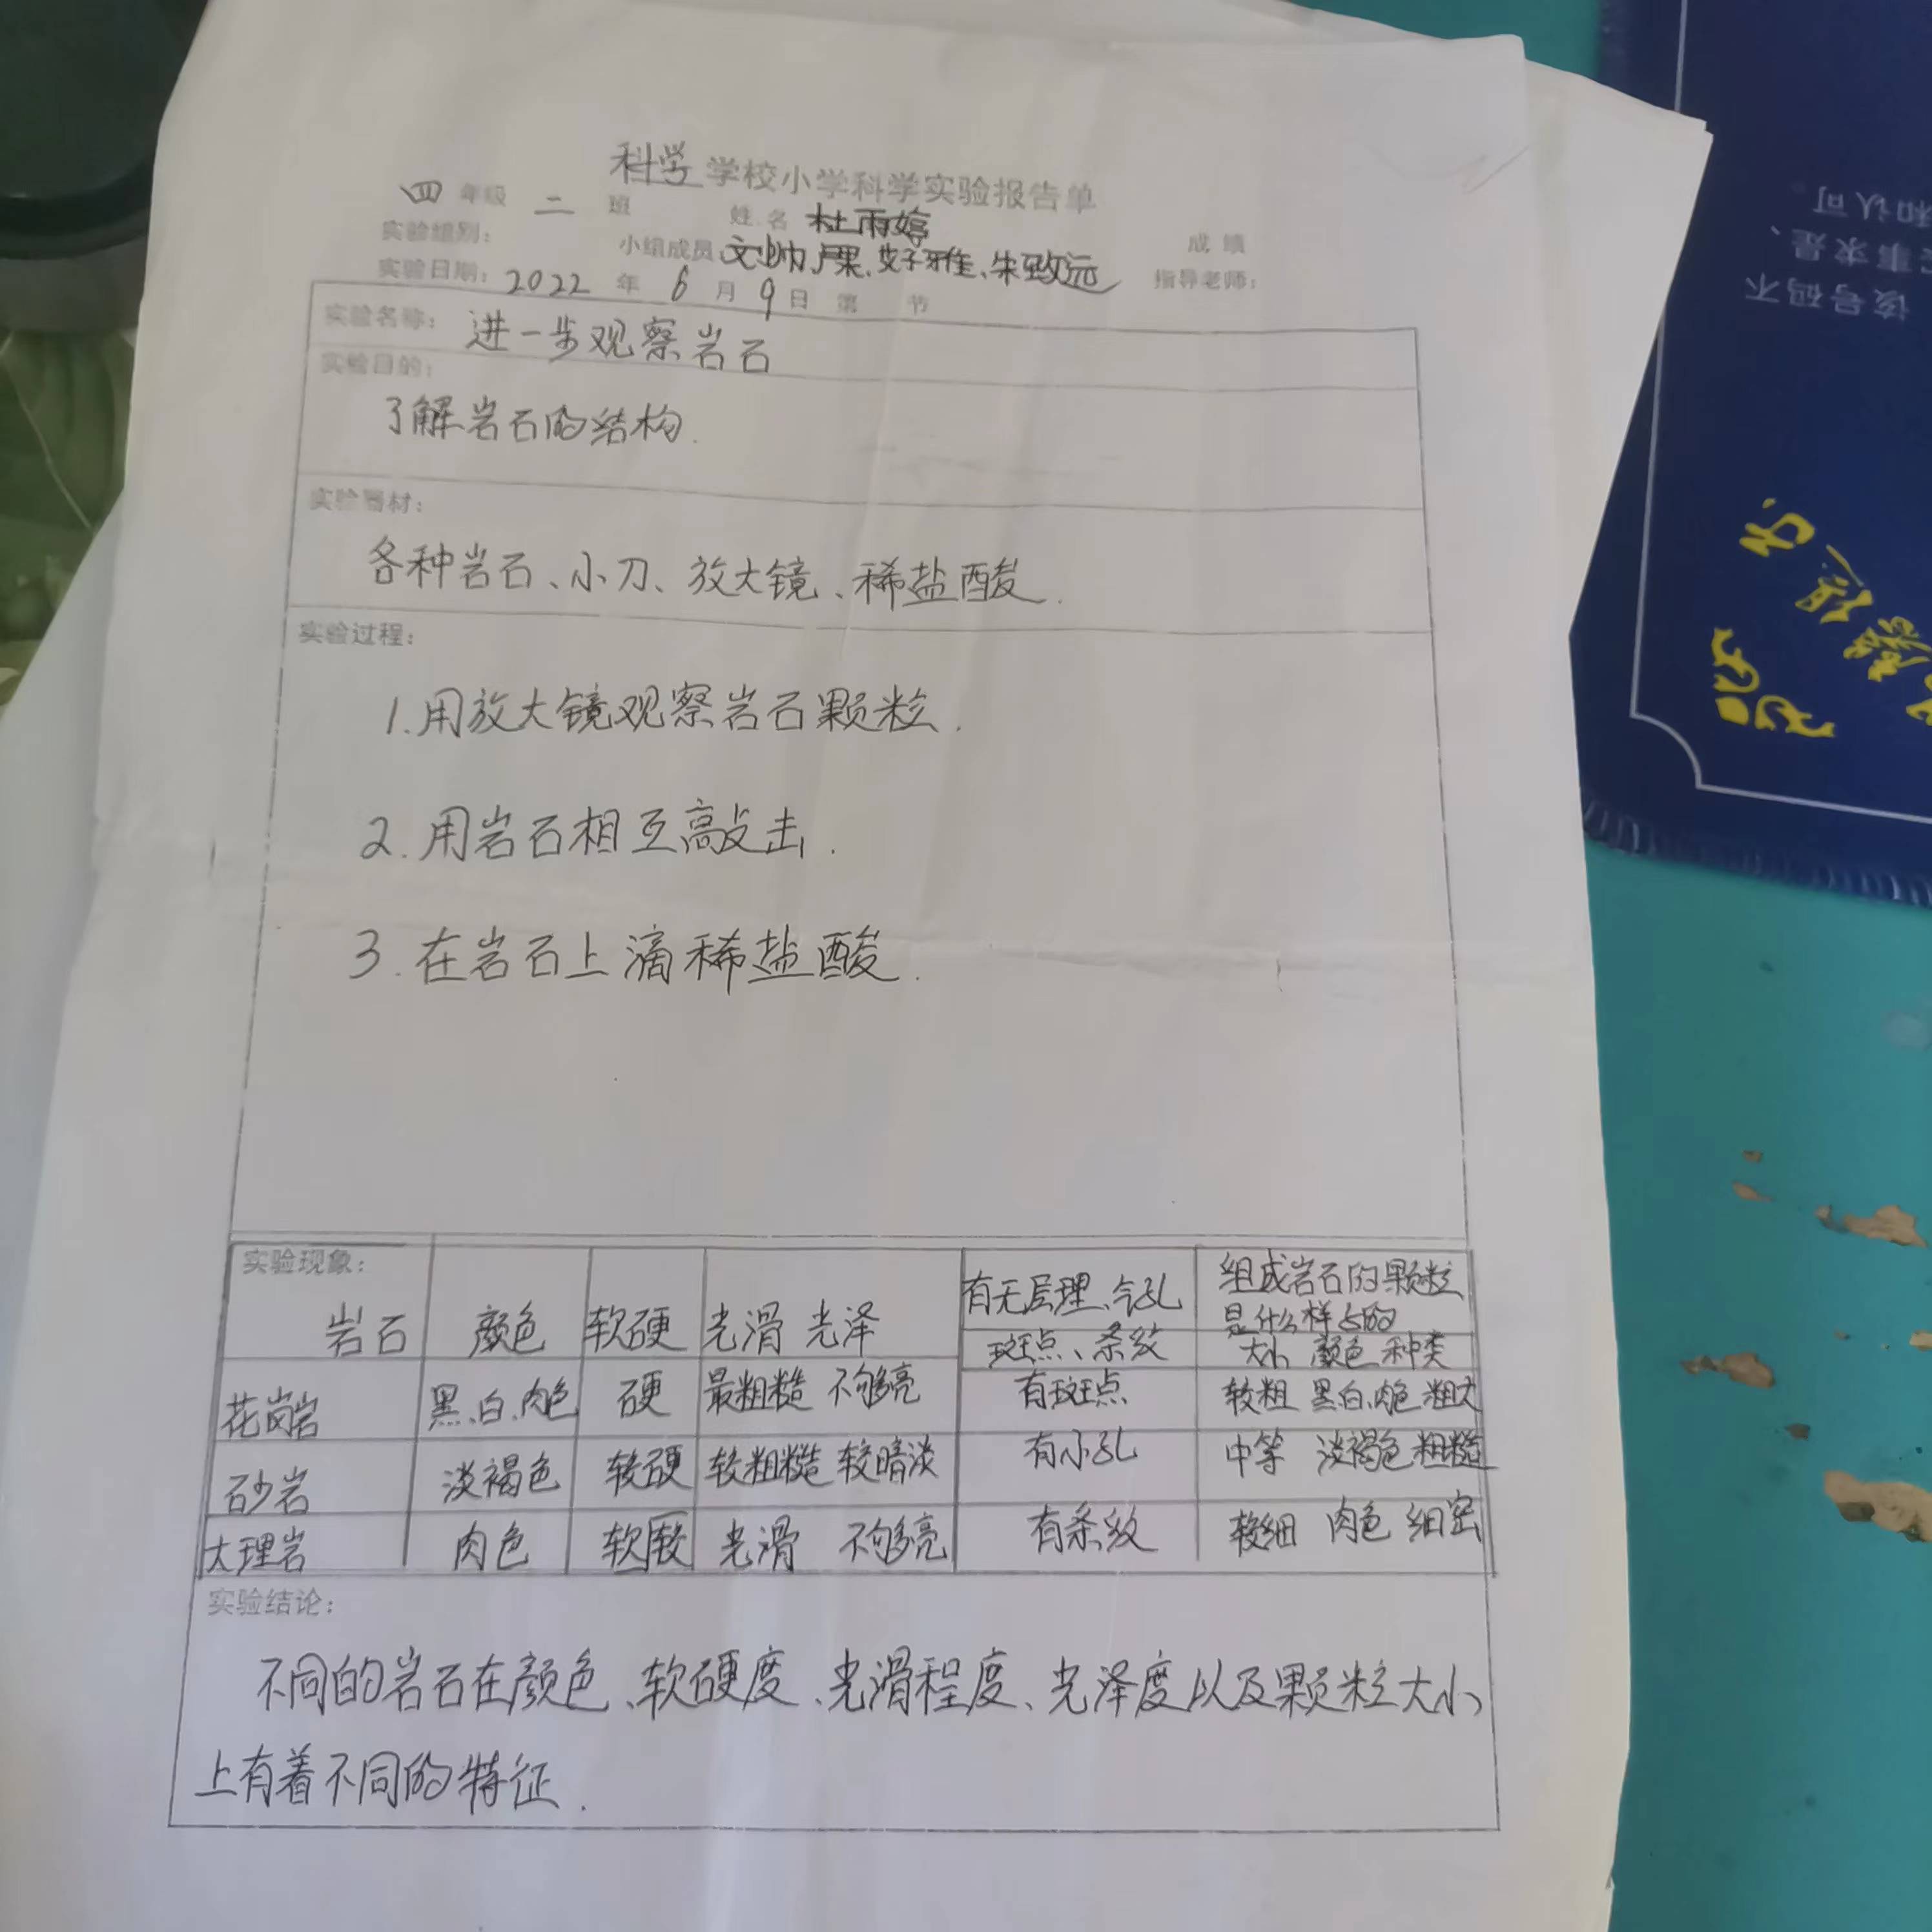 科学学校小学科学实验报告单
四年级 二 班 姓名 杜雨婷 成绩
实验组别: 小组成员 艾子雅、朱致远 指导老师:
实验日期: 2022 年 6 月 9 日 第 节
实验名称: 进一步观察岩石
实验目的:
了解岩石的结构.
实验器材:
各种岩石、小刀、放大镜、稀盐酸.
实验过程:
1.用放大镜观察岩石颗粒.
2.用岩石相互敲击.
3.在岩石上滴稀盐酸.
实验现象:
岩石 颜色 软硬 光滑 光泽 有无层理、气孔 斑点、条纹 组成岩石的颗粒是什么样的 大小 颜色 种类
花岗岩 黑、白、肉色 硬 最粗糙 不够亮 有斑点 较粗 黑、白、肉色 粗大
砂岩 淡褐色 较硬 较粗糙 较暗淡 有小孔 中等 淡褐色 粗糙
大理岩 肉色 软 光滑 不够亮 有条纹 较细 肉色 细密
实验结论:
不同的岩石在颜色、软硬度、光滑程度、光泽度以及颗粒大小
上有着不同的特征.
和认可
事求是、
该号码不